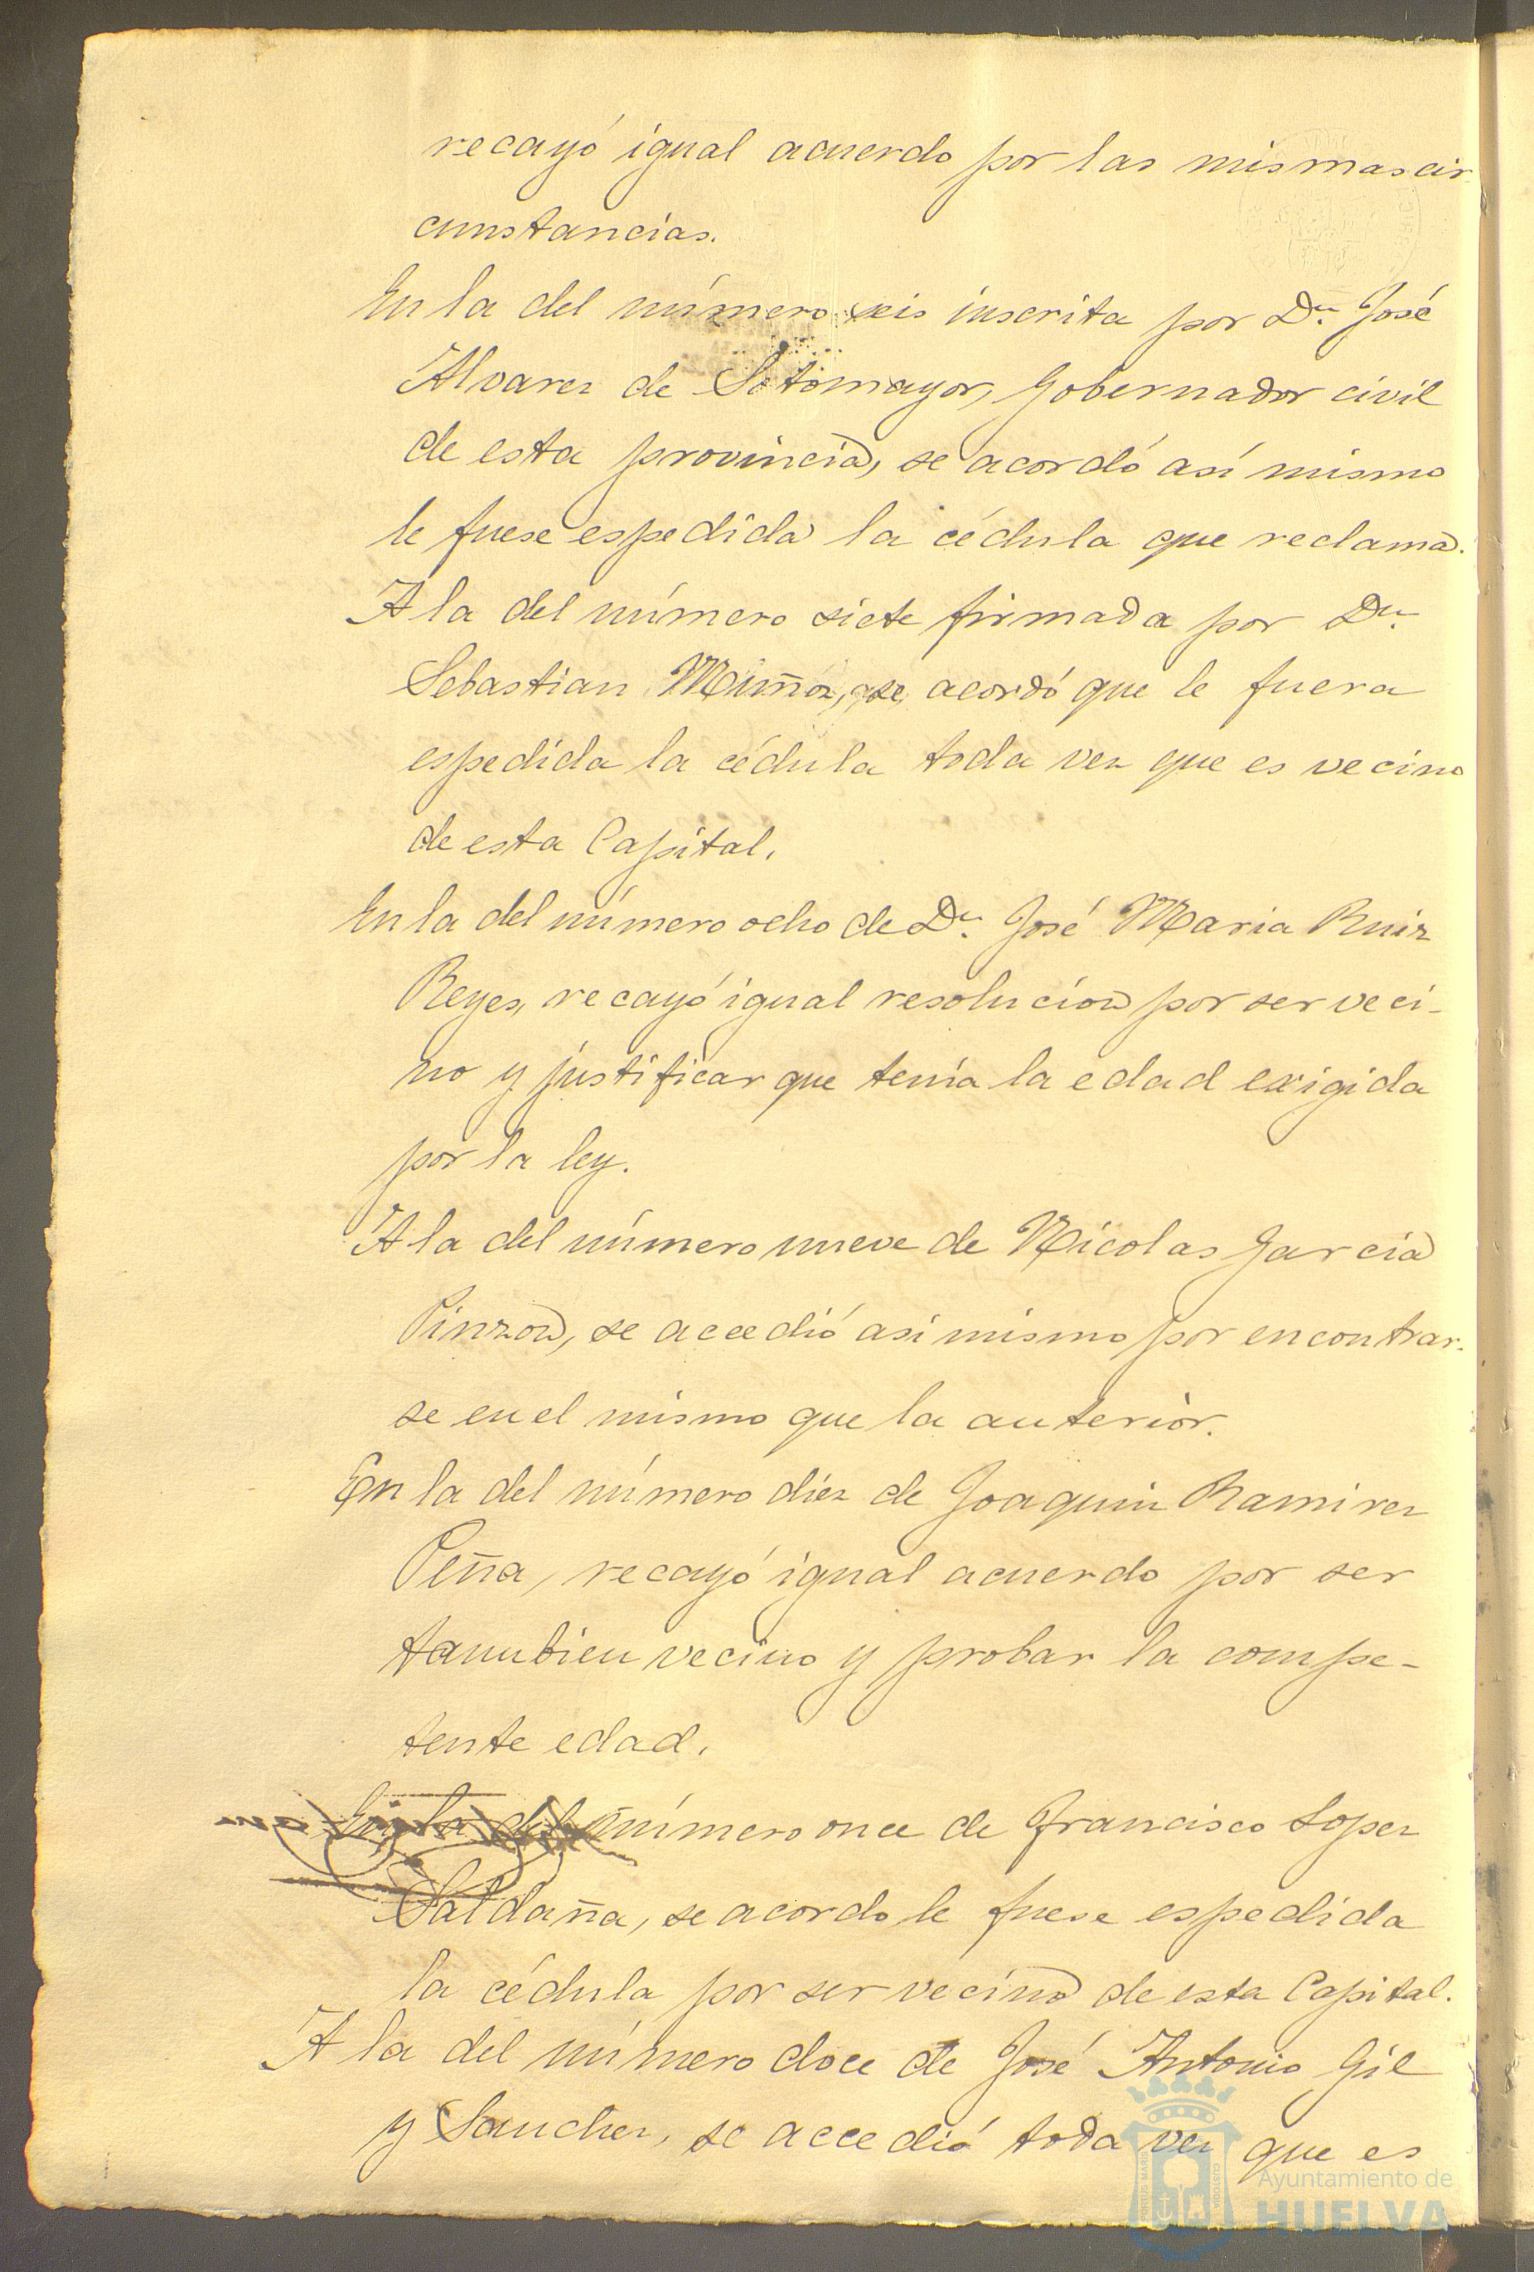 recayó igual acuerdo por las mismas cir-
cunstancias.
En la del número seis inscrita por Dn. José
Alvarez de Sotomayor, Gobernador civil
de esta provincia, se acordó así mismo
le fuese espedida la cédula que reclama.
A la del número siete firmada por Dn.
Sebastian Muñoz, se acordó que le fuera
espedida la cédula toda vez que es vecino
de esta Capital.
En la del número ocho de Dn. José Maria Ruiz
Reyes, recayó igual resolucion por ser veci-
no y justificar que tenía la edad exigida
por la ley.
A la del número nueve de Nicolas Garcia
Pinzon, se accedió asi mismo por encontrar-
se en el mismo que la anterior.
En la del número diez de Joaquin Ramirez
Peña, recayó igual acuerdo por ser
tambien vecino y probar la compe-
tente edad.
En la del número once de Francisco Lopez
Saldaña, se acordo le fuese espedida
la cédula por ser vecino de esta Capital.
A la del número doce de José Antonio Gil
y Sanchez, se accedió toda vez que es
Ayuntamiento de
HUELVA